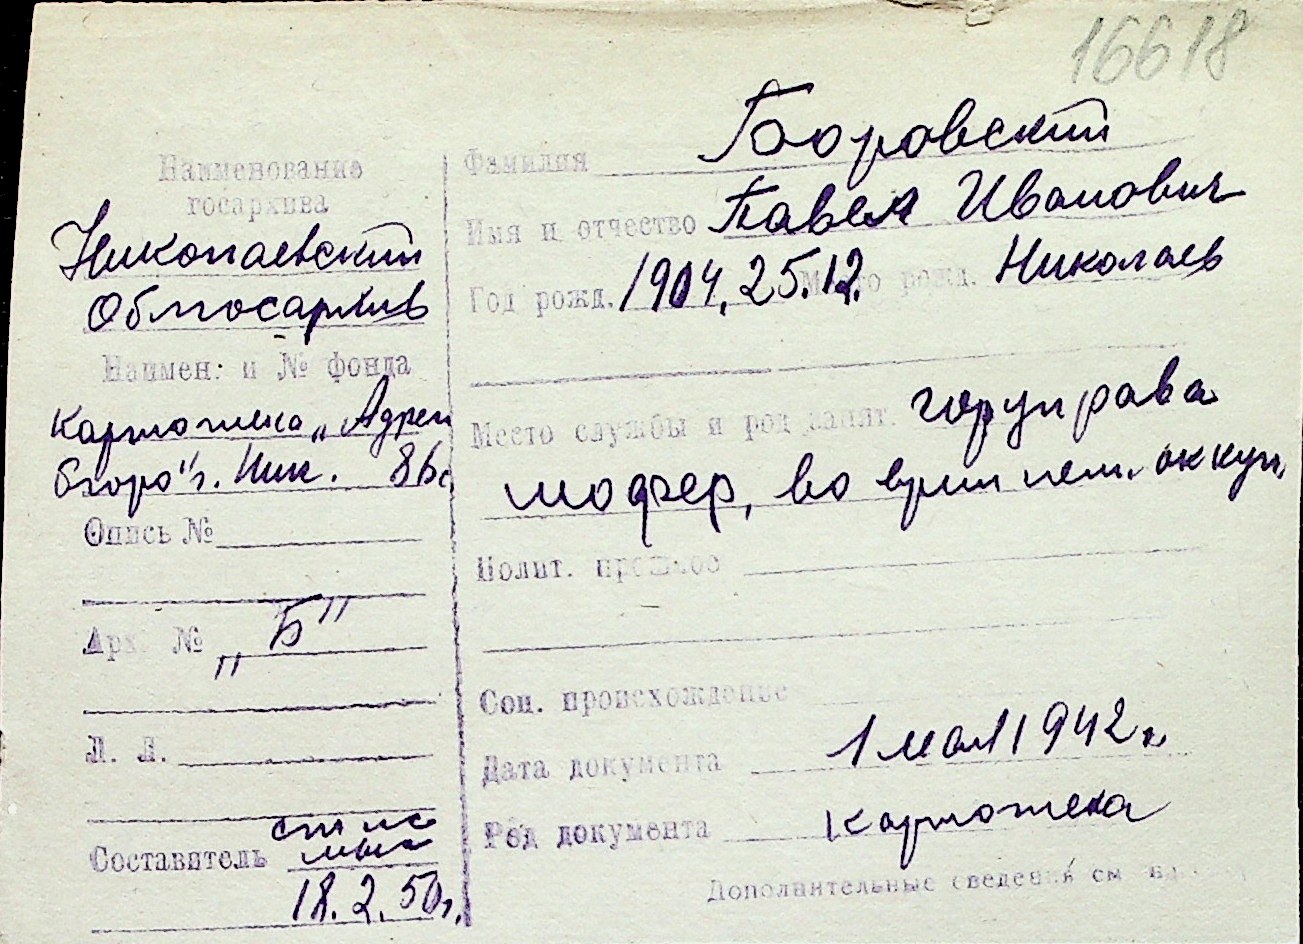 16618
Наименование
госархива
Николаевский
Облгосархив
Наимен: и № фонда
картотека „Адресн
бюро" г. Ник.
Опись №
Арх. № „Б"
Л. Л.
Составитель
18.2.50г.
Фамилия Боровский
Имя и отчество Павел Иванович
Год рожд. 1904, 25.12. Место рожд. Николаев
Место службы и род занят. горуправа
шофер, во врем нем. оккуп.
Полит. прошлое
Соц. происхождение
Дата документа 1 мая 1942 г.
Род документа картотека
Дополнительные сведения см